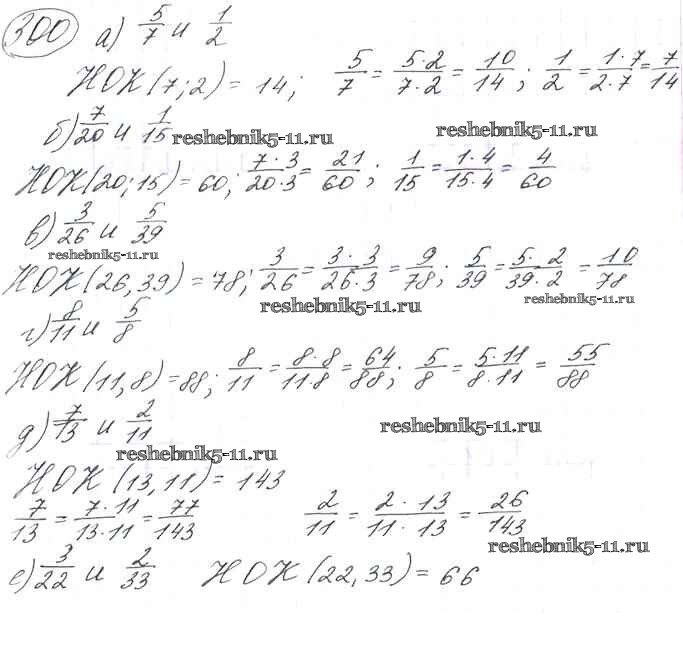 300 а) 5/7 и 1/2
НОК(7;2) = 14; 5/7 = 5·2/7·2 = 10/14; 1/2 = 1·7/2·7 = 7/14
б) 7/20 и 1/15 reshebnik5-11.ru reshebnik5-11.ru
НОК(20;15) = 60; 7·3/20·3 = 21/60; 1/15 = 1·4/15·4 = 4/60
в) 3/26 и 5/39
reshebnik5-11.ru
НОК(26,39) = 78; 3/26 = 3·3/26·3 = 9/78; 5/39 = 5·2/39·2 = 10/78
reshebnik5-11.ru reshebnik5-11.ru
г) 8/11 и 5/8
НОК(11,8) = 88; 8/11 = 8·8/11·8 = 64/88; 5/8 = 5·11/8·11 = 55/88
д) 7/13 и 2/11 reshebnik5-11.ru
reshebnik5-11.ru
НОК(13,11) = 143
7/13 = 7·11/13·11 = 77/143 2/11 = 2·13/11·13 = 26/143
reshebnik5-11.ru
е) 3/22 и 2/33 НОК(22,33) = 66